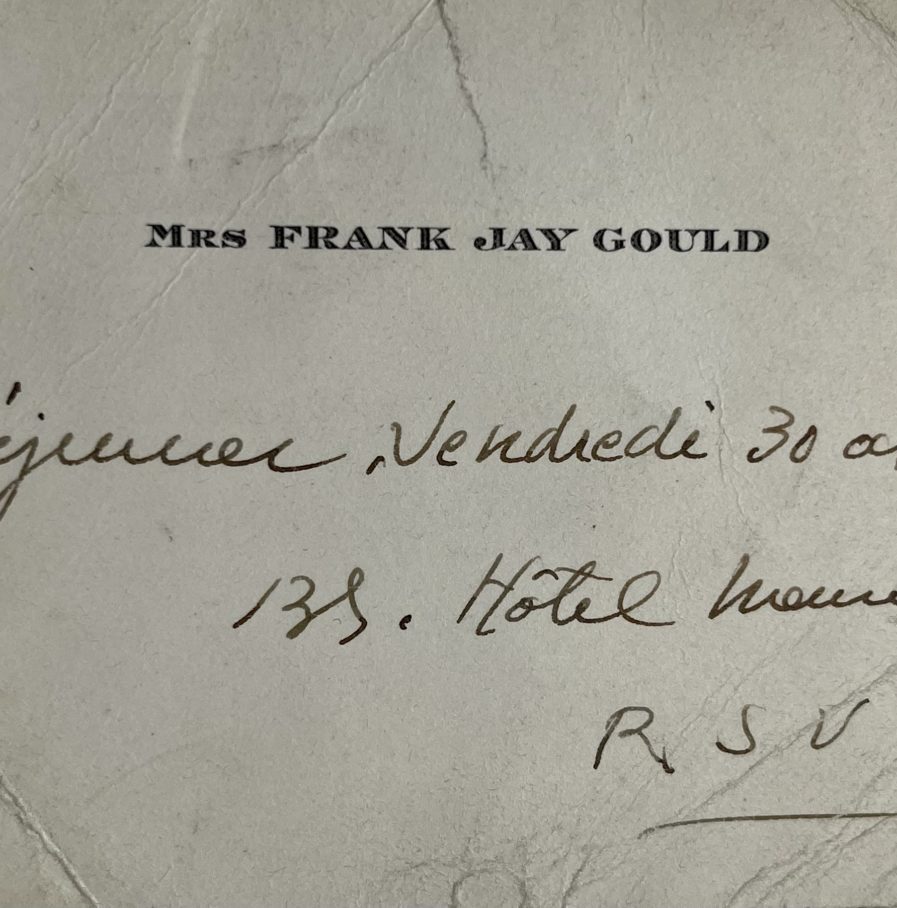 Mrs FRANK JAY GOULD
éjeuner, Vendredi 30
Hôtel
R S V